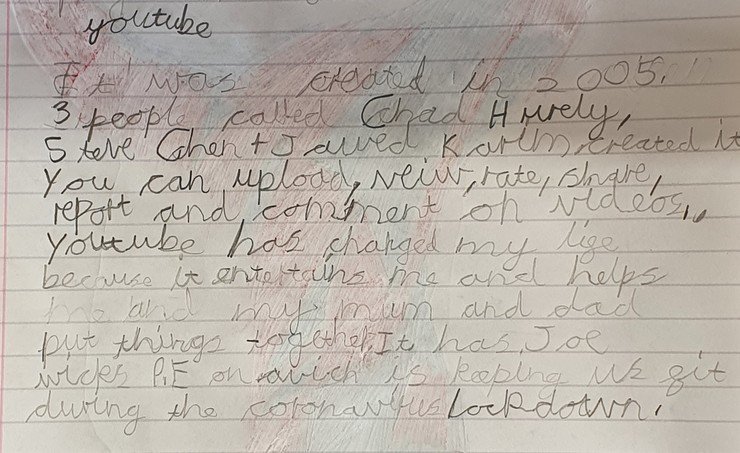 youtube
It was created in 2005.
3 people called Chad Hurely,
Steve Chen + Jawed Karim, created it
You can upload, veiw, rate, share,
report and comment on videos.
Youtube has changed my life
because it entertains me and helps
me and my mum and dad
put things together. It has Joe
wicks P.E on wich is keeping us fit
during the coronavirus Lockdown.